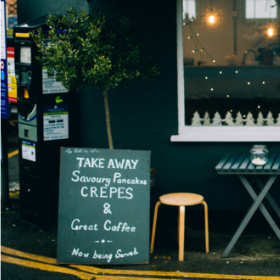 TAKE AWAY
Savoury Pancakes
CRÊPES
&
Great Coffee
Now being Served